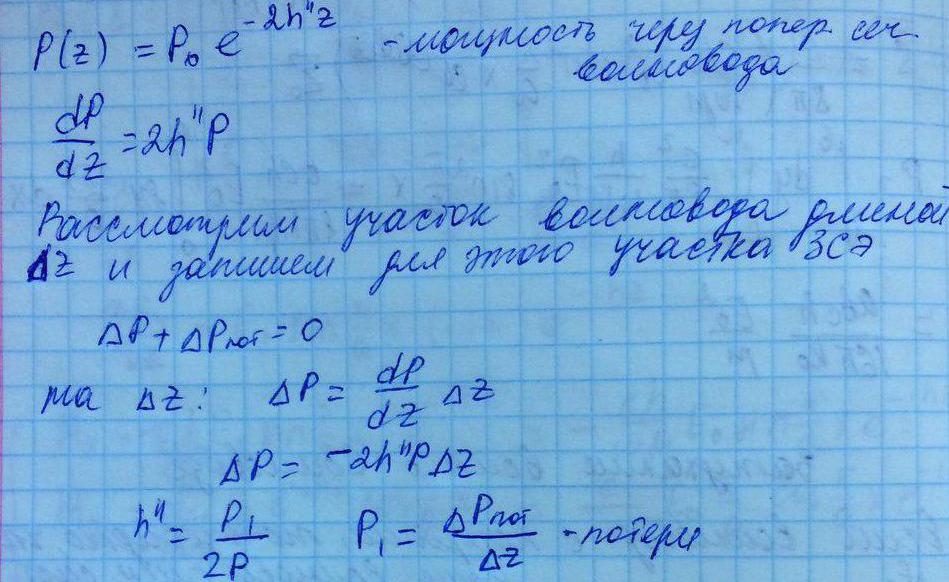 P(z) = P₀ e^{-2h''z} - мощность через попер. сеч.
волновода
dP/dz = 2h''P
Рассмотрим участок волновода длиной
Δz и запишем для этого участка ЗСЭ
ΔP + ΔPпот = 0
на Δz: ΔP = dP/dz Δz
ΔP = -2h''PΔz
h'' = P₁/2P P₁ = ΔPпот/Δz - потери